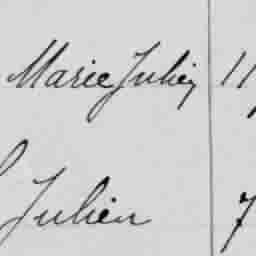 Marie Julien 11
Julien 7